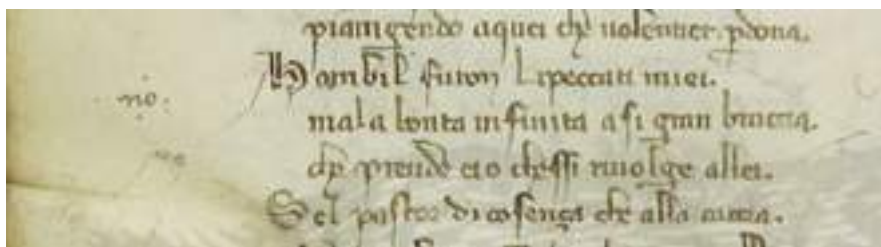 piangendo aquei che uolentier pdona.
Horribil furon li peccati miei.
·no·
ma la bonta infinita a si gran braccia.
che prende cio chessi riuolge allei.
Sel pastor di cosença che alla caccia.